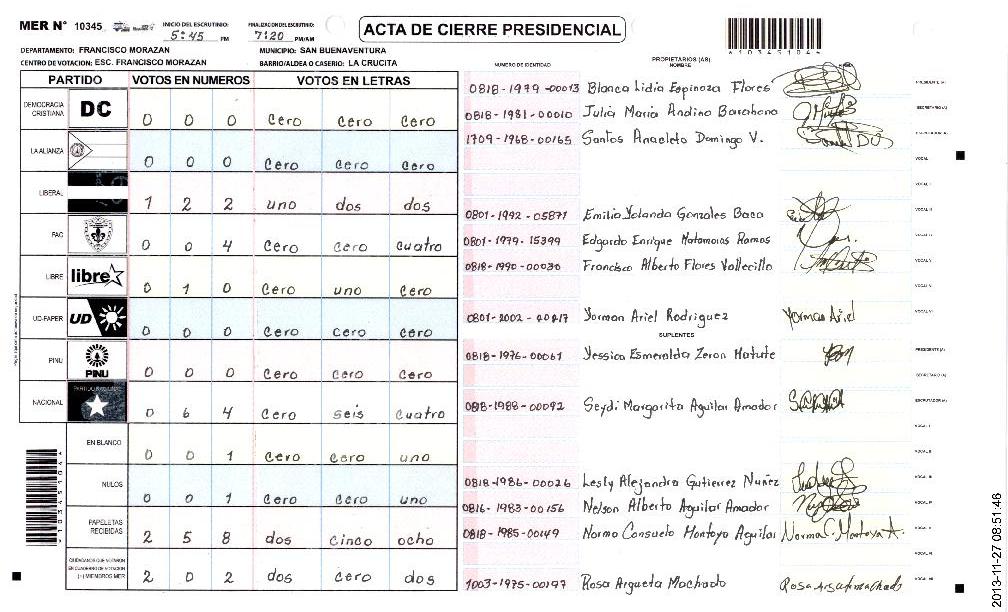 MER N° 10345 INICIO DEL ESCRUTINIO: 5:45 PM FINALIZACION DEL ESCRUTINIO: 7:20 PM/AM
ACTA DE CIERRE PRESIDENCIAL
DEPARTAMENTO: FRANCISCO MORAZAN MUNICIPIO: SAN BUENAVENTURA
CENTRO DE VOTACION: ESC. FRANCISCO MORAZAN BARRIO/ALDEA O CASERIO: LA CRUCITA
PARTIDO VOTOS EN NUMEROS VOTOS EN LETRAS
DEMOCRACIA CRISTIANA DC 0 0 0 Cero Cero Cero
LA ALIANZA 0 0 0 Cero Cero Cero
LIBERAL 1 2 2 uno dos dos
FAC 0 0 4 Cero Cero cuatro
LIBRE libre 0 1 0 Cero uno Cero
UD-FAPER UD 0 0 0 Cero Cero Cero
PINU PINU 0 0 0 Cero Cero Cero
NACIONAL PARTIDO NACIONAL 0 6 4 Cero seis cuatro
EN BLANCO 0 0 1 Cero Cero uno
NULOS 0 0 1 Cero Cero uno
PAPELETAS RECIBIDAS 2 5 8 dos cinco ocho
CIUDADANOS QUE VOTARON EN CUADERNO DE VOTACION (+) MIEMBROS MER 2 0 2 dos cero dos
NUMERO DE IDENTIDAD PROPIETARIOS (AS) NOMBRE
0818-1979-00013 Blanca Lidia Espinoza Flores PRESIDENTE (A)
0818-1981-00010 Julia Maria Andino Barahona SECRETARIO (A)
1709-1968-00165 Santos Anacleto Domingo V. ESCRUTADOR (A)
VOCAL I
VOCAL II
0801-1992-05871 Emilia Yolanda Gonzales Baca VOCAL III
0801-1979-15399 Edgardo Enrique Matamoros Ramos
0818-1990-00030 Francisco Alberto Flores Vallecillo VOCAL V
0801-2002-00417 Yorman Ariel Rodriguez Yorman Ariel
SUPLENTES
0818-1976-00061 Yessica Esmeralda Zeron Matute PRESIDENTE (A)
SECRETARIO (A)
0818-1988-00092 Seydi Margarita Aguilar Amador ESCRUTADOR (A)
VOCAL I
VOCAL II
0818-1986-00026 Lesly Alejandra Gutierrez Nuñez VOCAL III
0816-1983-00156 Nelson Alberto Aguilar Amador VOCAL IV
0818-1985-00149 Norma Consuelo Montoya Aguilar Norma C. Montoya A.
1003-1975-00197 Rosa Argueta Machado Rosa Argueta Machado
1034510451
2013-11-27 08:51:46